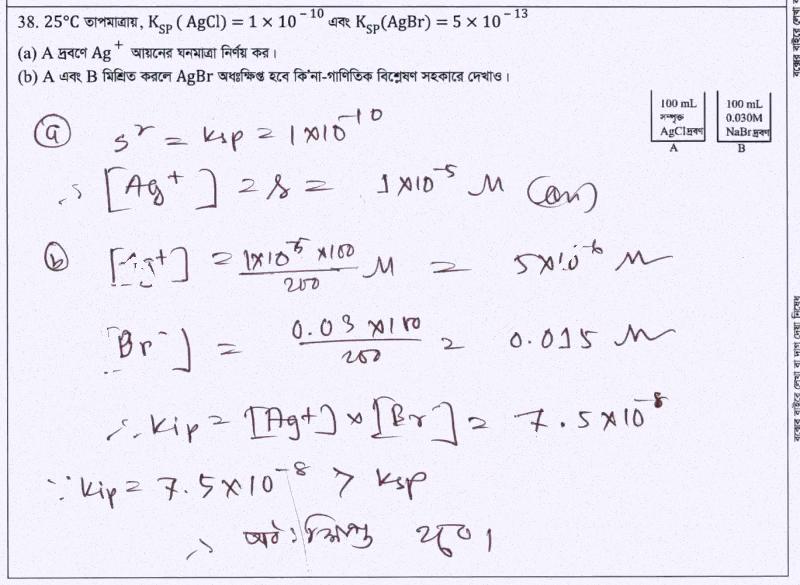 38. 25°C তাপমাত্রায়, K_SP ( AgCl) = 1 × 10⁻¹⁰ এবং K_SP(AgBr) = 5 × 10⁻¹³
(a) A দ্রবণে Ag⁺ আয়নের ঘনমাত্রা নির্ণয় কর।
(b) A এবং B মিশ্রিত করলে AgBr অধঃক্ষিপ্ত হবে কি'না-গাণিতিক বিশ্লেষণ সহকারে দেখাও।
100 mL সম্পৃক্ত AgCl দ্রবণ
A
100 mL 0.030M NaBr দ্রবণ
B
(a) s² = Ksp = 1×10⁻¹⁰
∴ [Ag⁺] = s = 1×10⁻⁵ M (Ans)
(b) [Ag⁺] = 1×10⁻⁵ ×100 / 200 M = 5×10⁻⁶ M
[Br⁻] = 0.03 ×100 / 200 = 0.015 M
∴ Kip = [Ag+] × [Br⁻] = 7.5×10⁻⁸
∵ Kip = 7.5×10⁻⁸ > Ksp
∴ অধঃক্ষিপ্ত হবে।